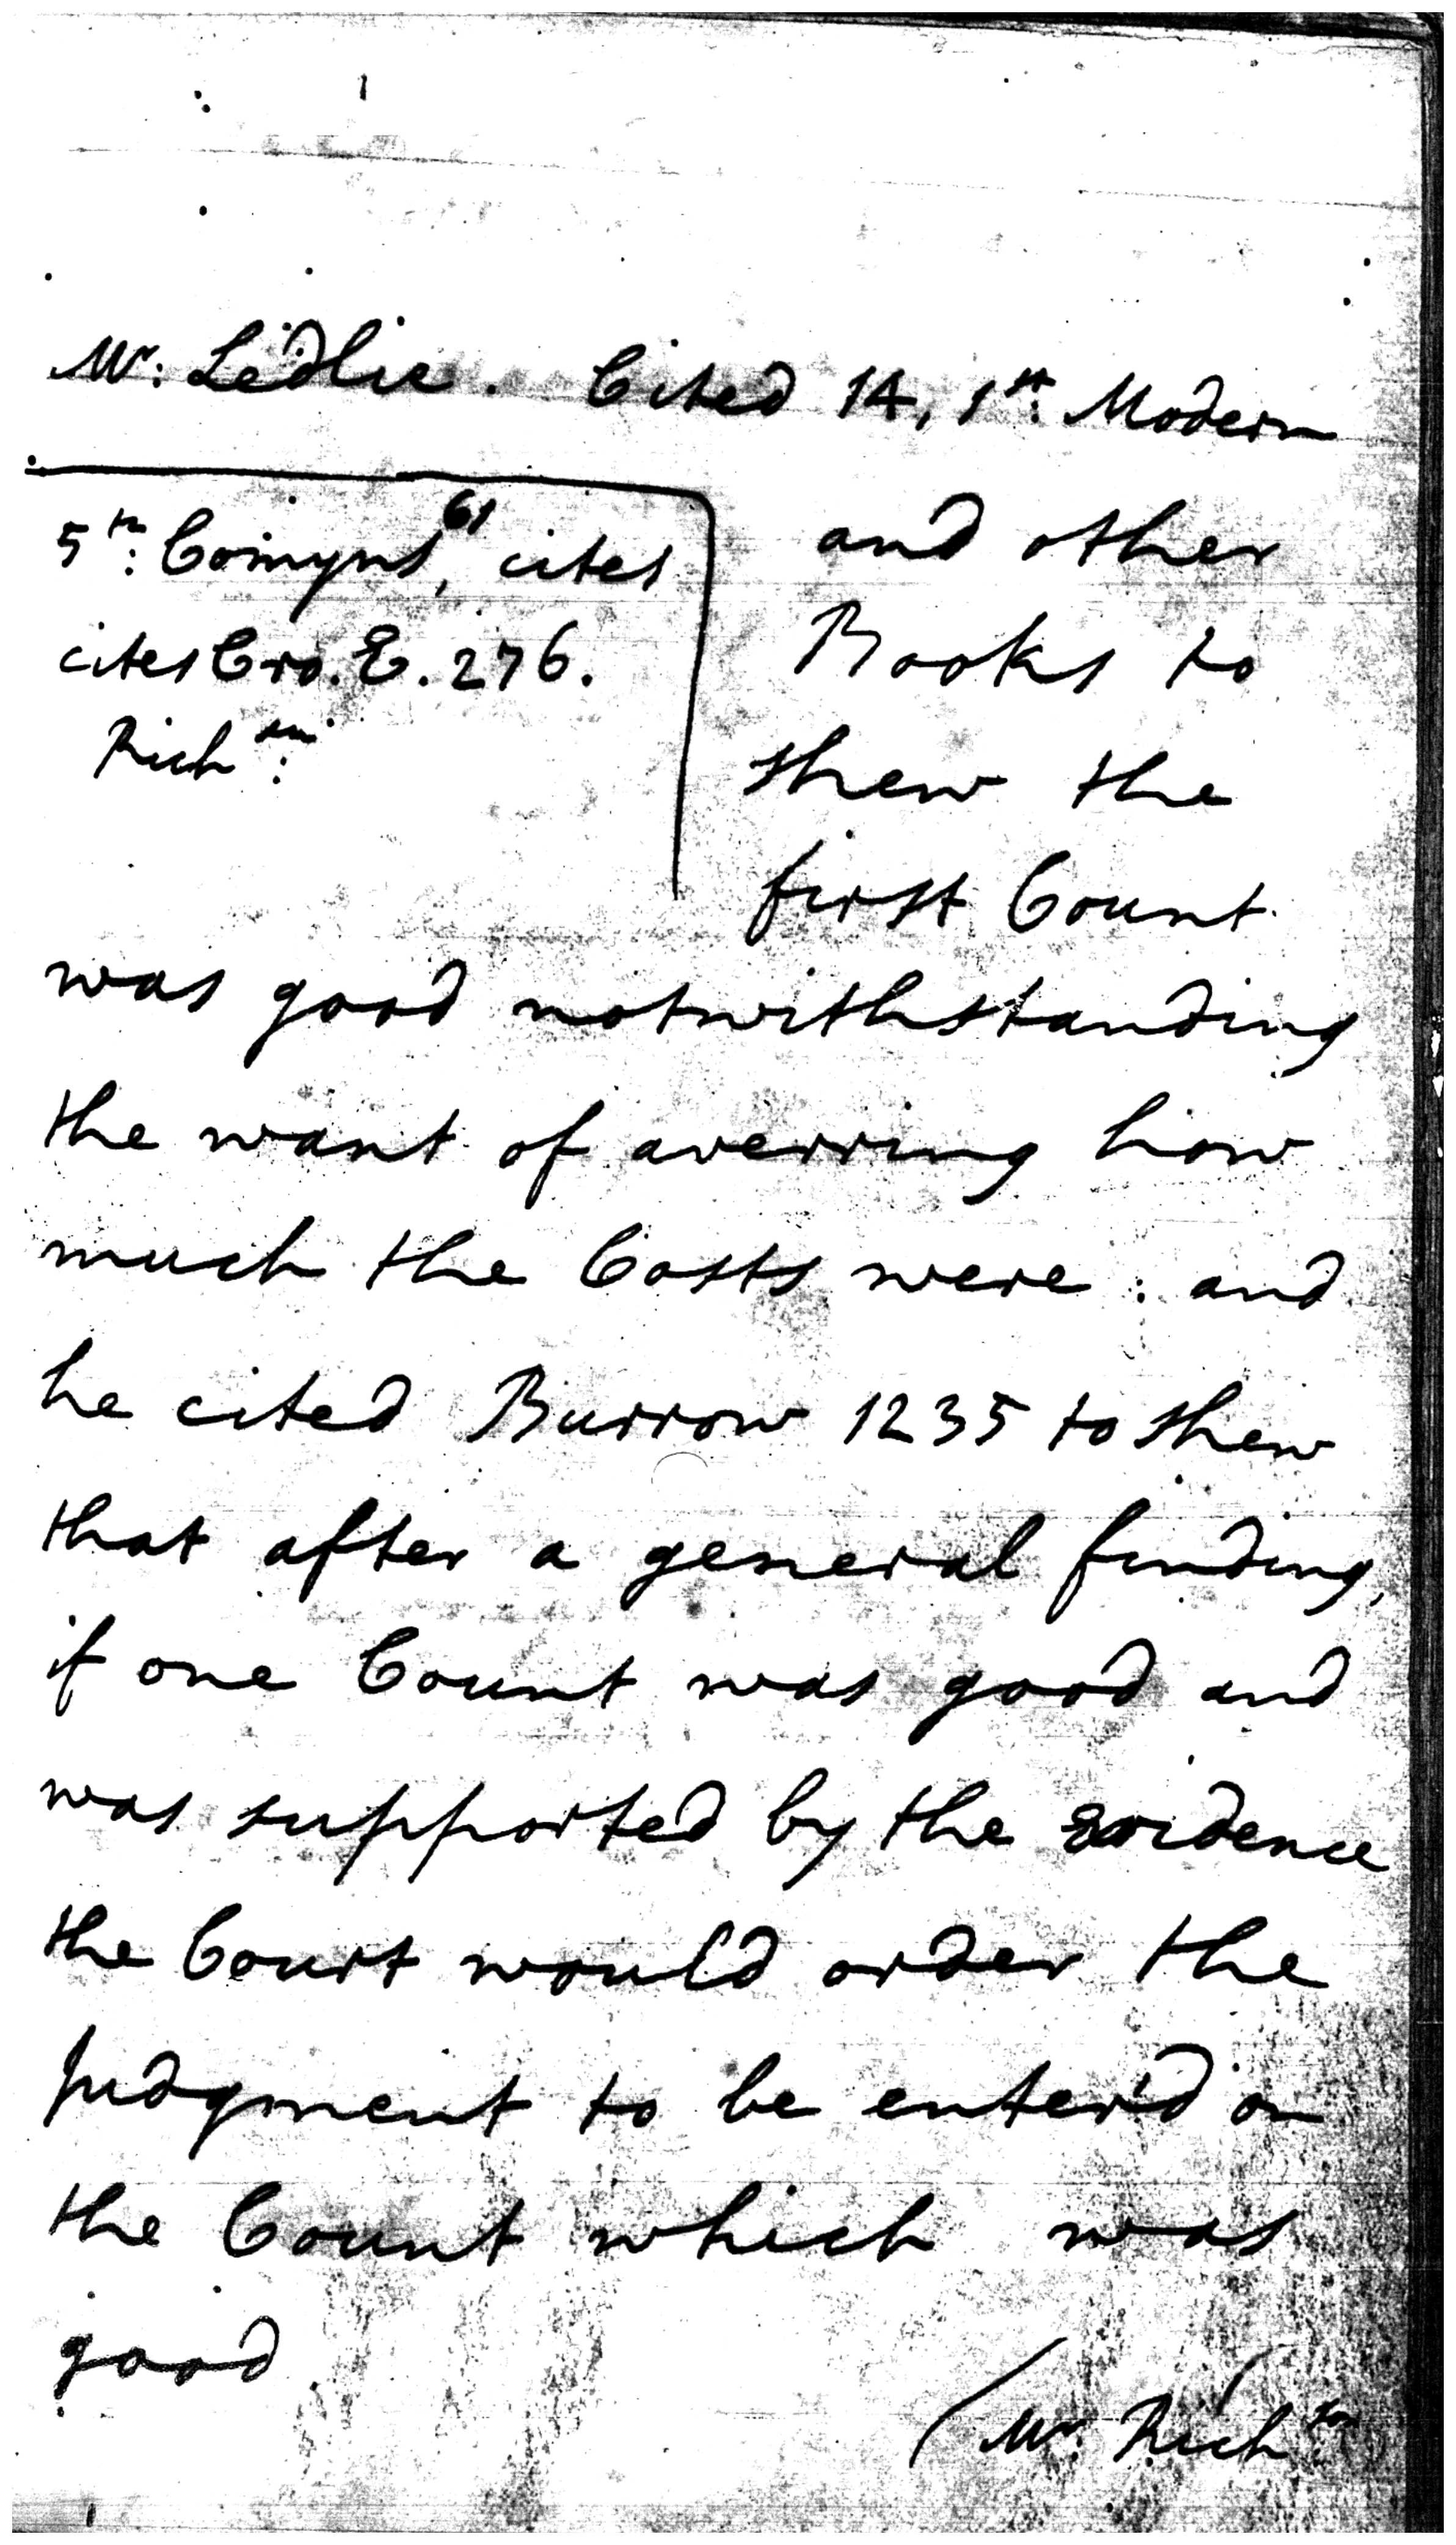 Mr: Ledlie. Cited 14, 1st: Modern
5th: Comyns, 61 cites
cites Cro. E. 276.
Richson:
and other
Books to
shew the
first Count
was good notwithstanding
the want of averring how
much the Costs were: and
he cited Burrow 1235 to shew
that after a general finding,
if one Count was good and
was supported by the Evidence
the Court would order the
Judgment to be enter'd on
the Count which was
good.
(Mr: Richson: